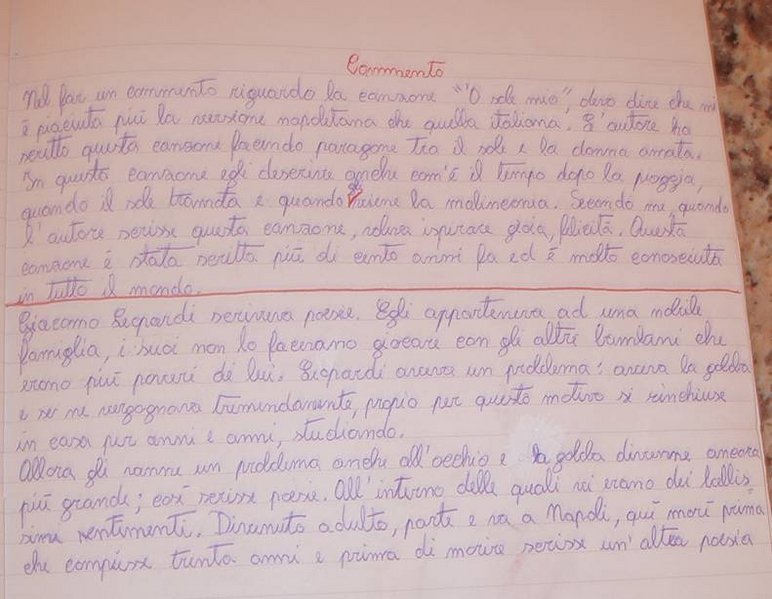 Commento
Nel far un commento riguardo la canzone "'O sole mio", devo dire che mi
è piaciuta più la versione napoletana che quella italiana. L'autore ha
scritto questa canzone facendo paragone tra il sole e la donna amata.
In questa canzone egli descrive anche com'è il tempo dopo la pioggia,
quando il sole tramota e quando viene la malinconia. Secondo me, quando
l'autore scrisse questa canzone, voleva ispirare gioia, felicità. Questa
canzone è stata scritta più di cento anni fa ed è molto conosciuta
in tutto il mondo.
Giacomo Leopardi scriveva poesie. Egli apparteneva ad una nobile
famiglia, i suoi non lo facevano giocare con gli altri bambani che
erano più poveri di lui. Leopardi aveva un problema: aveva la gobba
e se ne vergognava tremendamente, propio per questo motivo si rinchiuse
in casa per anni e anni, studiando.
Allora gli venne un problema anche all'occhio e la gobba divenne ancora
più grande; così scrisse poesie. All'interno delle quali vi erano dei bellis
simi sentimenti. Divenuto adulto, parte e va a Napoli, qui morì prima
che compiesse trenta anni e prima di morire scrisse un'altra poesia